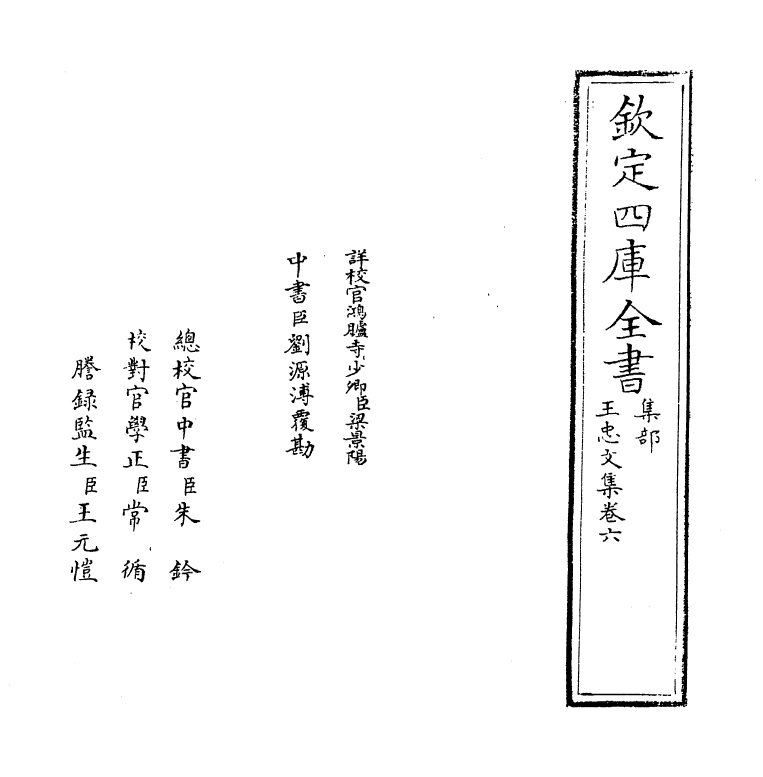 欽定四庫全書
集部
王忠文集卷六
詳校官鴻臚寺少卿臣梁景陽
中書臣劉源溥覆勘
總校官中書臣朱鈐
校對官學正臣常循
謄錄監生臣王元愷